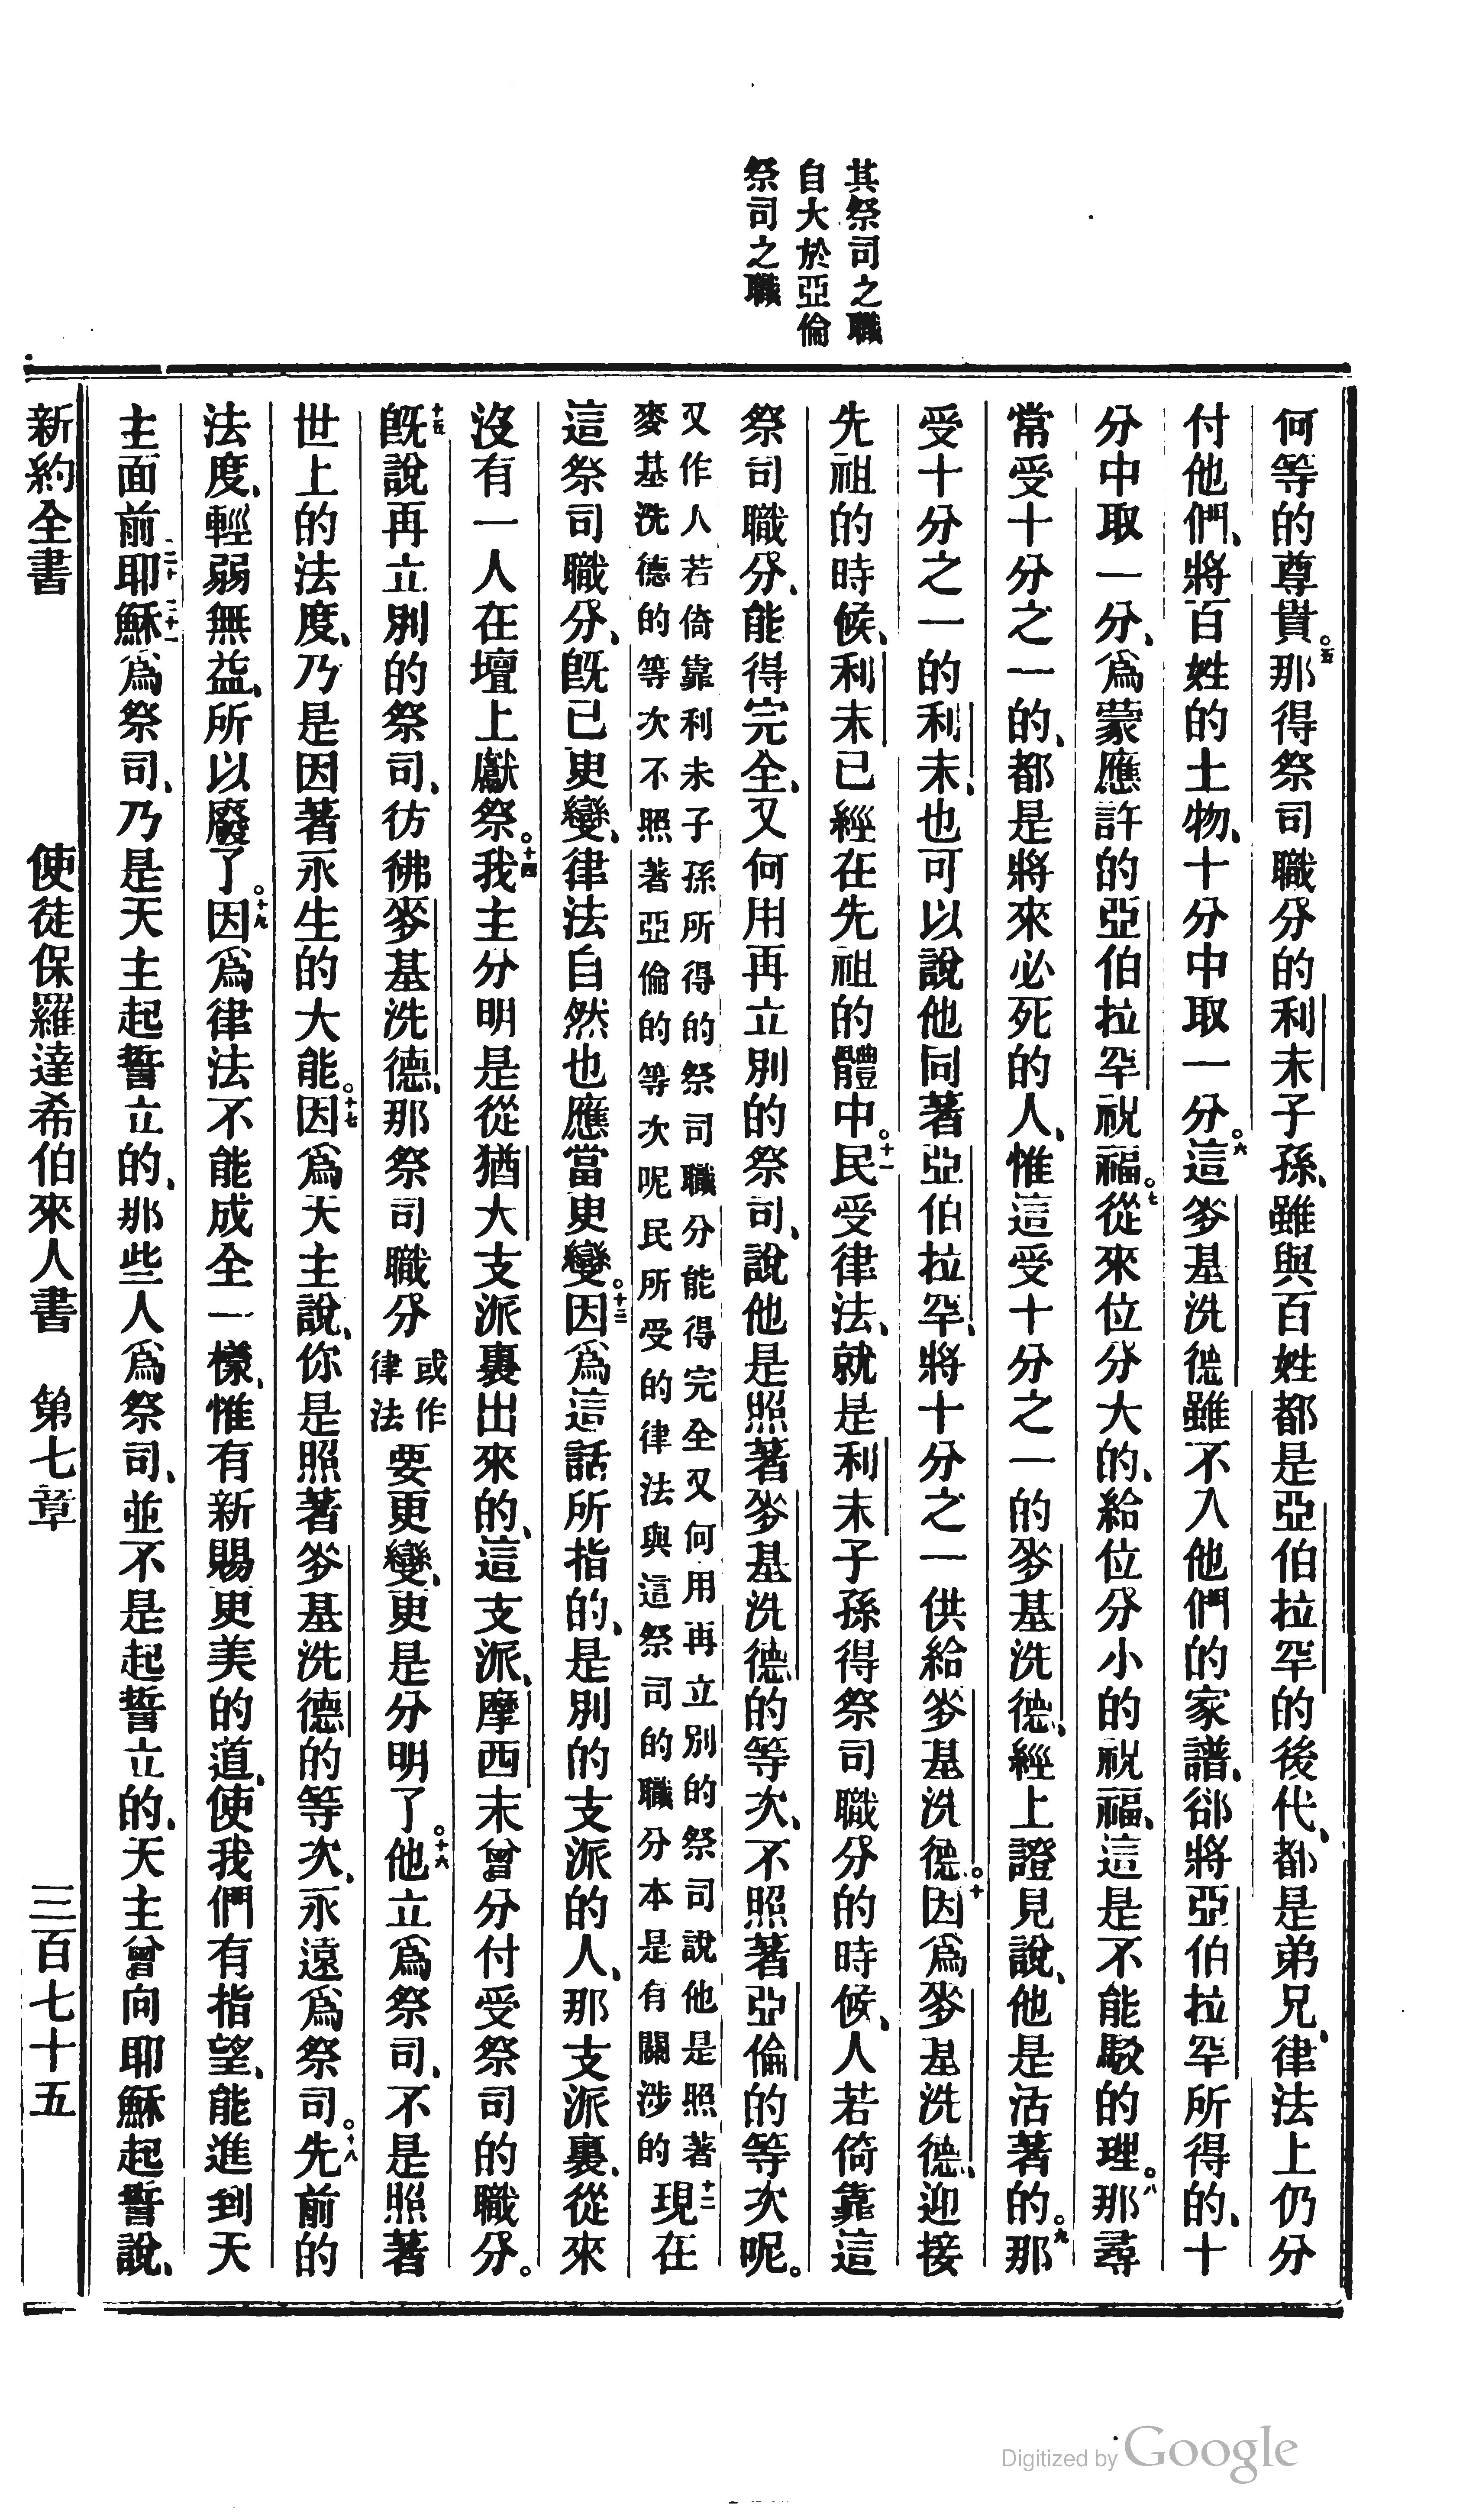 其祭司之職
自大於亞倫
祭司之職
何等的尊貴。五那得祭司職分的利未子孫、雖與百姓都是亞伯拉罕的後代、都是弟兄、律法上仍分
付他們、將百姓的土物、十分中取一分。六這麥基洗德雖不入他們的家譜、卻將亞伯拉罕所得的、十
分中取一分、爲蒙應許的亞伯拉罕祝福。七從來位分大的、給位分小的祝福、這是不能駁的理。八那尋
常受十分之一的、都是將來必死的人、惟這受十分之一的麥基洗德、經上證見說、他是活著的。九那
受十分之一的利未、也可以說他同著亞伯拉罕、將十分之一供給麥基洗德。十因爲麥基洗德、迎接
先祖的時候、利未已經在先祖的體中。十一民受律法、就是利未子孫得祭司職分的時候、人若倚靠這
祭司職分、能得完全、又何用再立別的祭司、說他是照著麥基洗德的等次、不照著亞倫的等次呢。
又作人若倚靠利未子孫所得的祭司職分能得完全又何用再立別的祭司說他是照著
麥基洗德的等次不照著亞倫的等次呢民所受的律法與這祭司的職分本是有關涉的
十二現在
這祭司職分、旣已更變、律法自然也應當更變。十三因爲這話所指的、是別的支派的人、那支派裏、從來
沒有一人在壇上獻祭。十四我主分明是從猶大支派裏出來的、這支派、摩西未曾分付受祭司的職分。
十五旣說再立別的祭司、彷彿麥基洗德、那祭司職分或作律法要更變、更是分明了。十六他立爲祭司、不是照著
世上的法度、乃是因著永生的大能。十七因爲天主說、你是照著麥基洗德的等次、永遠爲祭司。十八先前的
法度、輕弱無益、所以廢了。十九因爲律法不能成全一樣、惟有新賜更美的道、使我們有指望、能進到天
主面前二十耶穌二十一爲祭司、乃是天主起誓立的、那些人爲祭司、並不是起誓立的、天主曾向耶穌起誓說、
新約全書 使徒保羅達希伯來人書 第七章 三百七十五
Digitized by Google